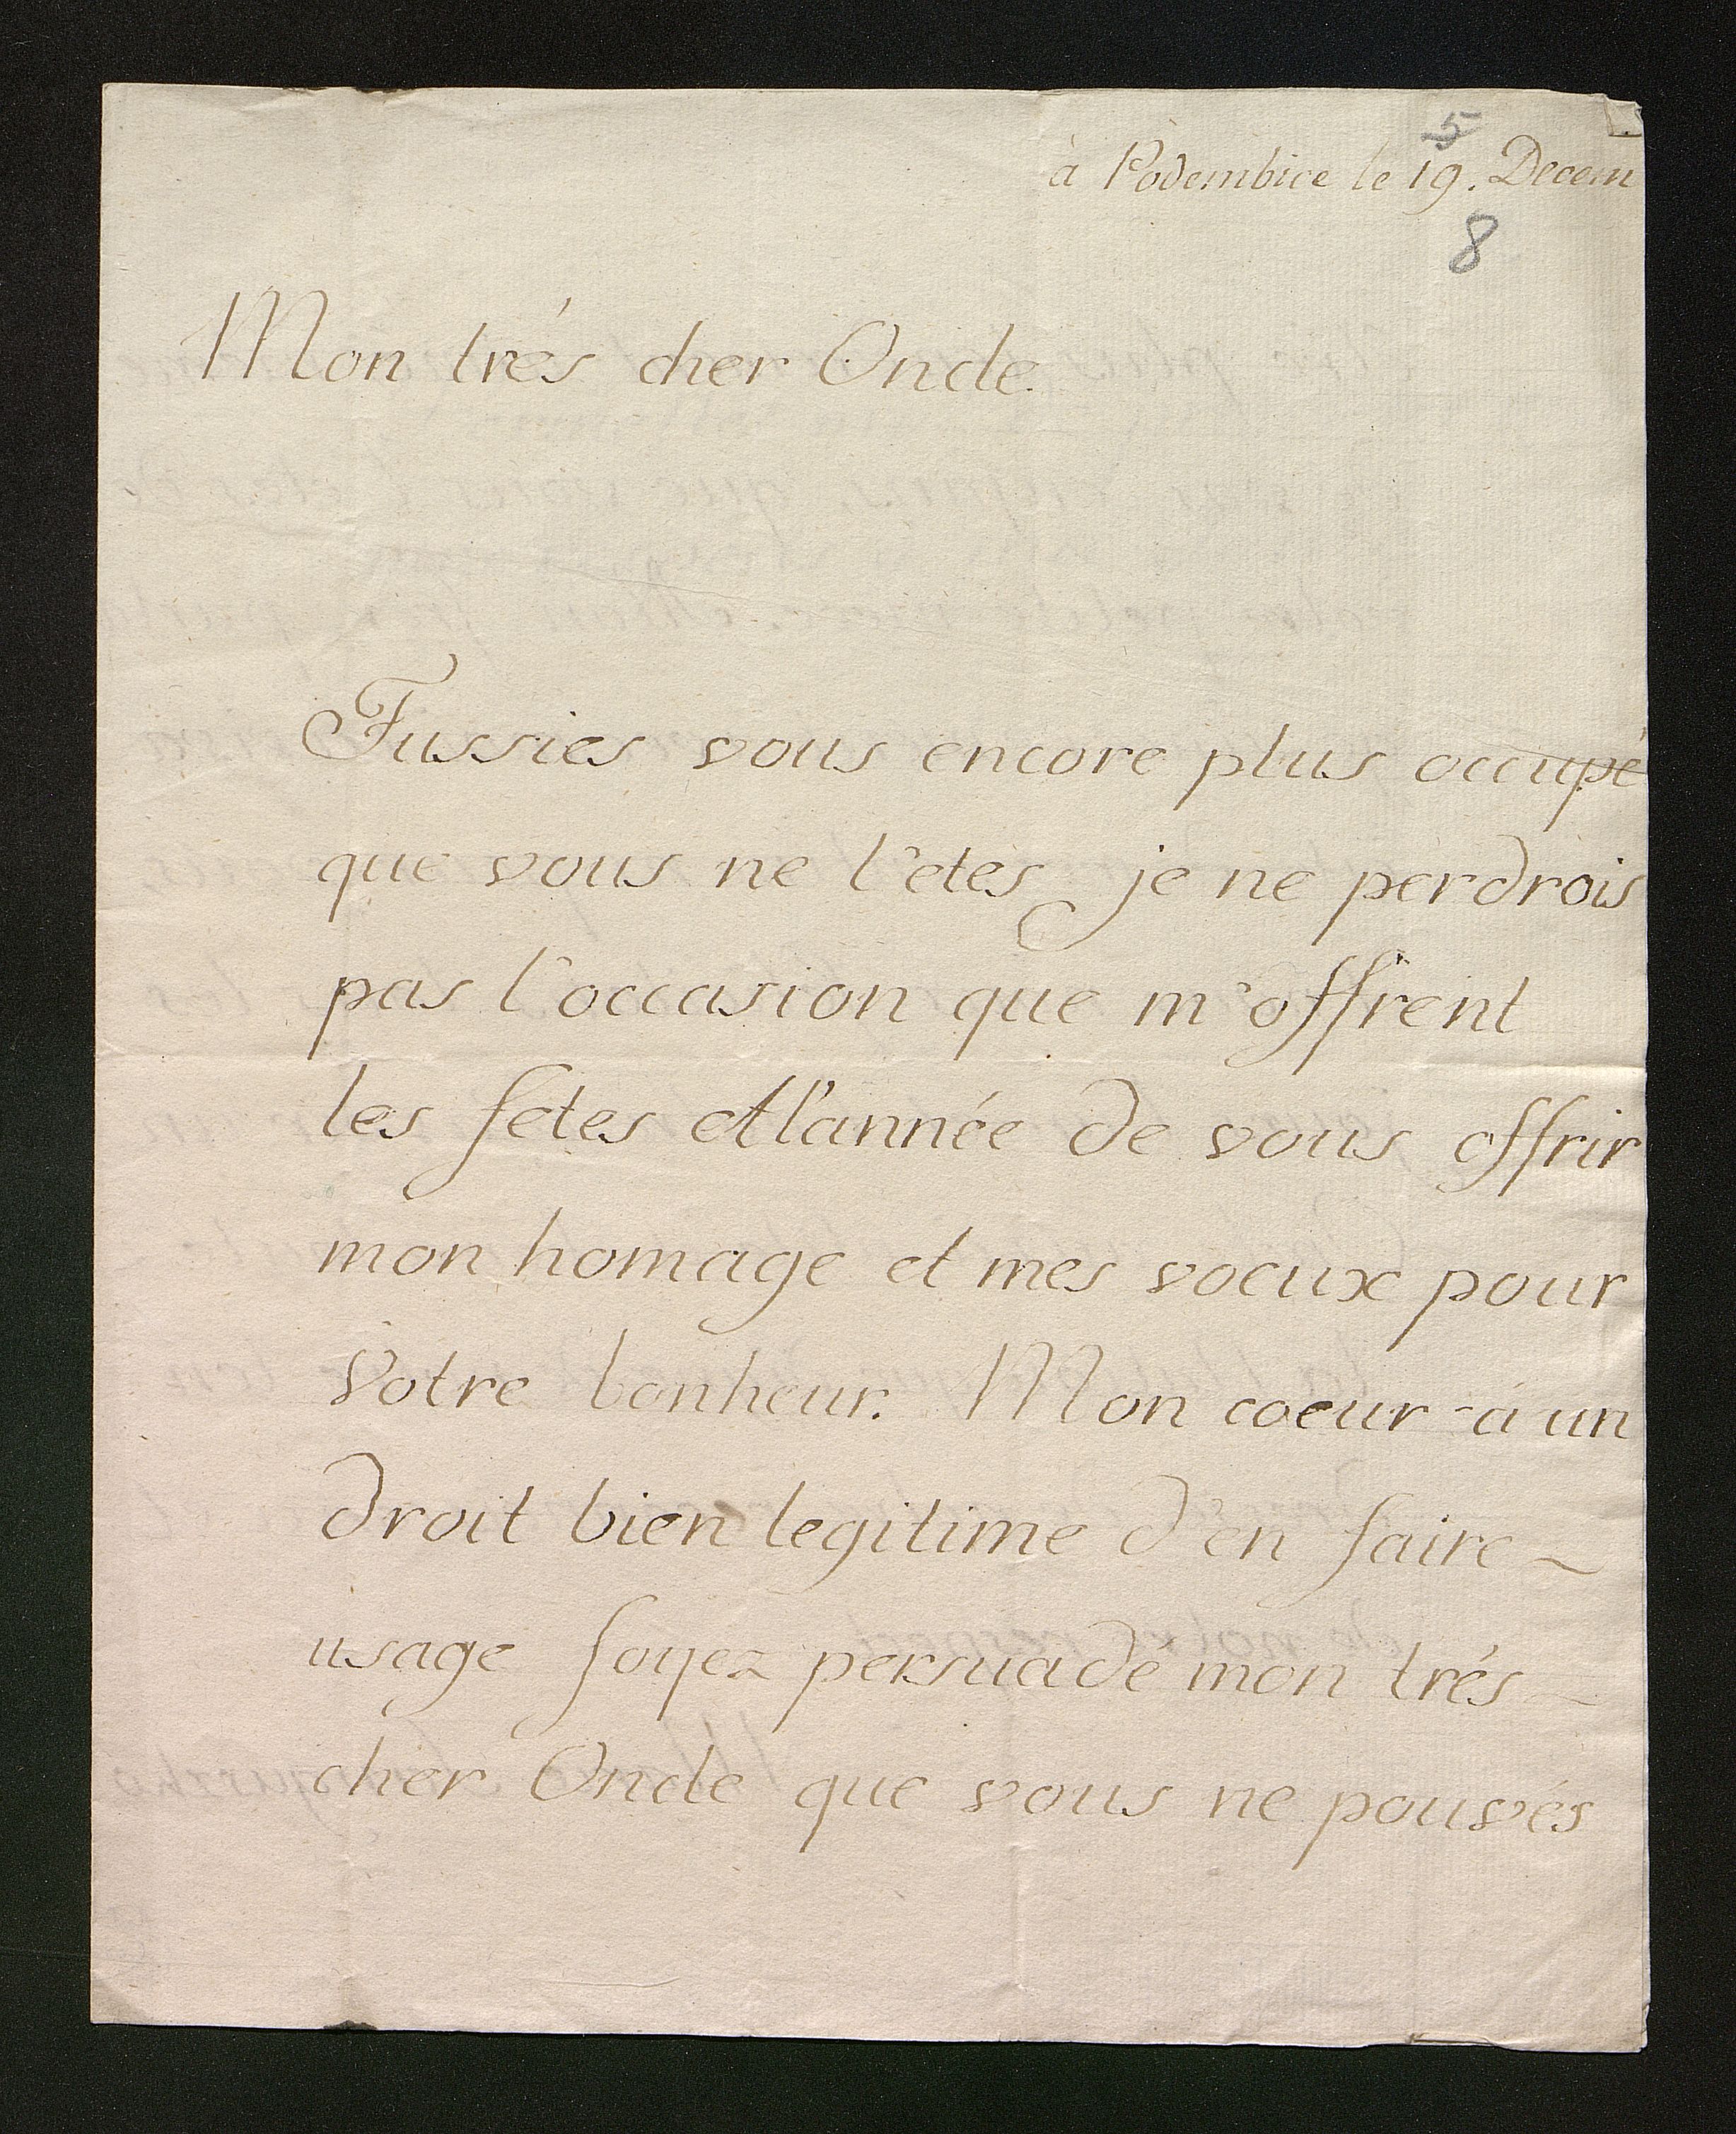 5
à Podembice le 19. Decem
8
Mon trés cher Oncle.
Fussies vous encore plus occupé
que vous ne l'etes je ne perdrois
pas l'occasion que m'offrent
les fetes et l'année de vous offrir
mon homage et mes voeux pour
votre bonheur. Mon coeur à un
droit bien legitime d'en faire
usage soyez persuadé mon trés
cher Oncle que vous ne pouvés